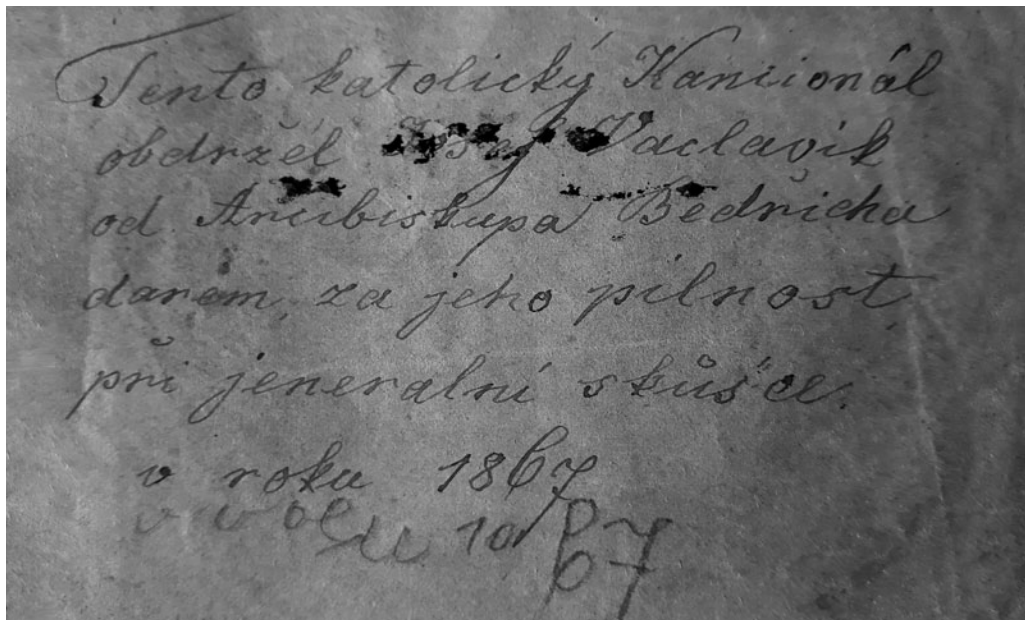 Tento katolický Kancionál
obdržel Josef Vaclavik
od Arcibiskupa Bedřicha
darem, za jeho pilnost,
při jeneralní skůšce.
v roku 1867
67